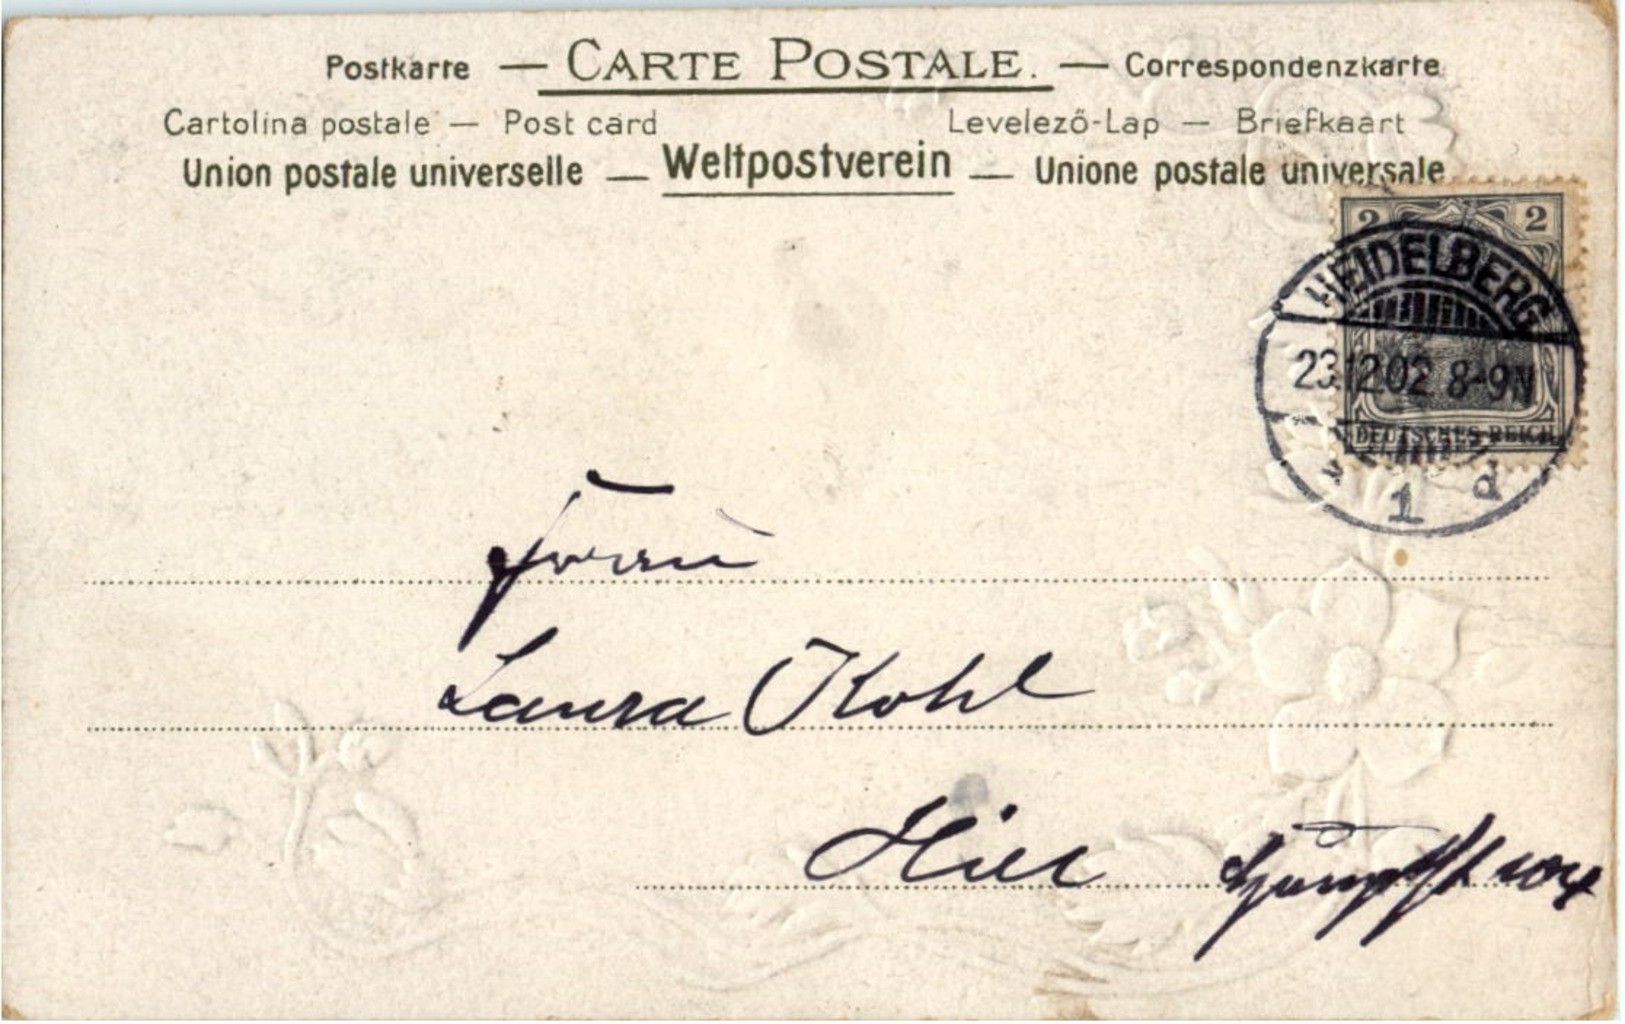 Postkarte — CARTE POSTALE. — Correspondenzkarte
Cartolina postale — Post card Levelező-Lap — Briefkaart
Union postale universelle — Weltpostverein — Unione postale universale
2 2
HEIDELBERG
23.12.02 8-9N
DEUTSCHES REICH
* 1 d
Frau
Laura Kohl
Hier Hauptst 104